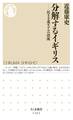 近藤康史
分解するイギリス
民主主義モデルの漂流
CHIKUMA SHINSHO
ちくま新書